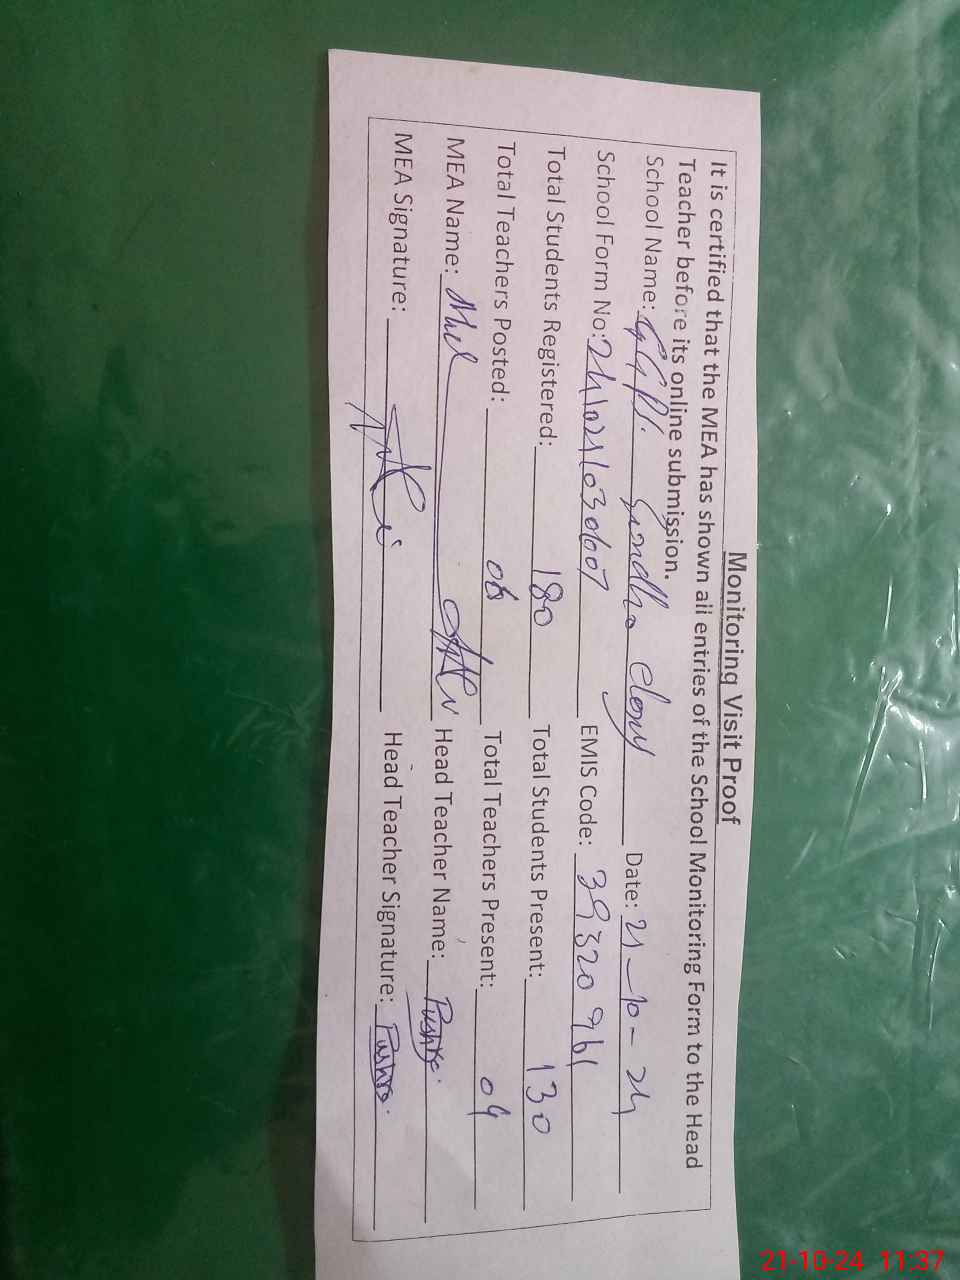 Monitoring Visit Proof
It is certified that the MEA has shown all entries of the School Monitoring Form to the Head
Teacher before its online submission.
School Name: GGPS. Date: 21-10-24
School Form No: EMIS Code: 39320961
Total Students Registered: 180 Total Students Present: 130
Total Teachers Posted: 06 Total Teachers Present: 04
MEA Name: Head Teacher Name:
MEA Signature: Head Teacher Signature:
21-10-24 11:37